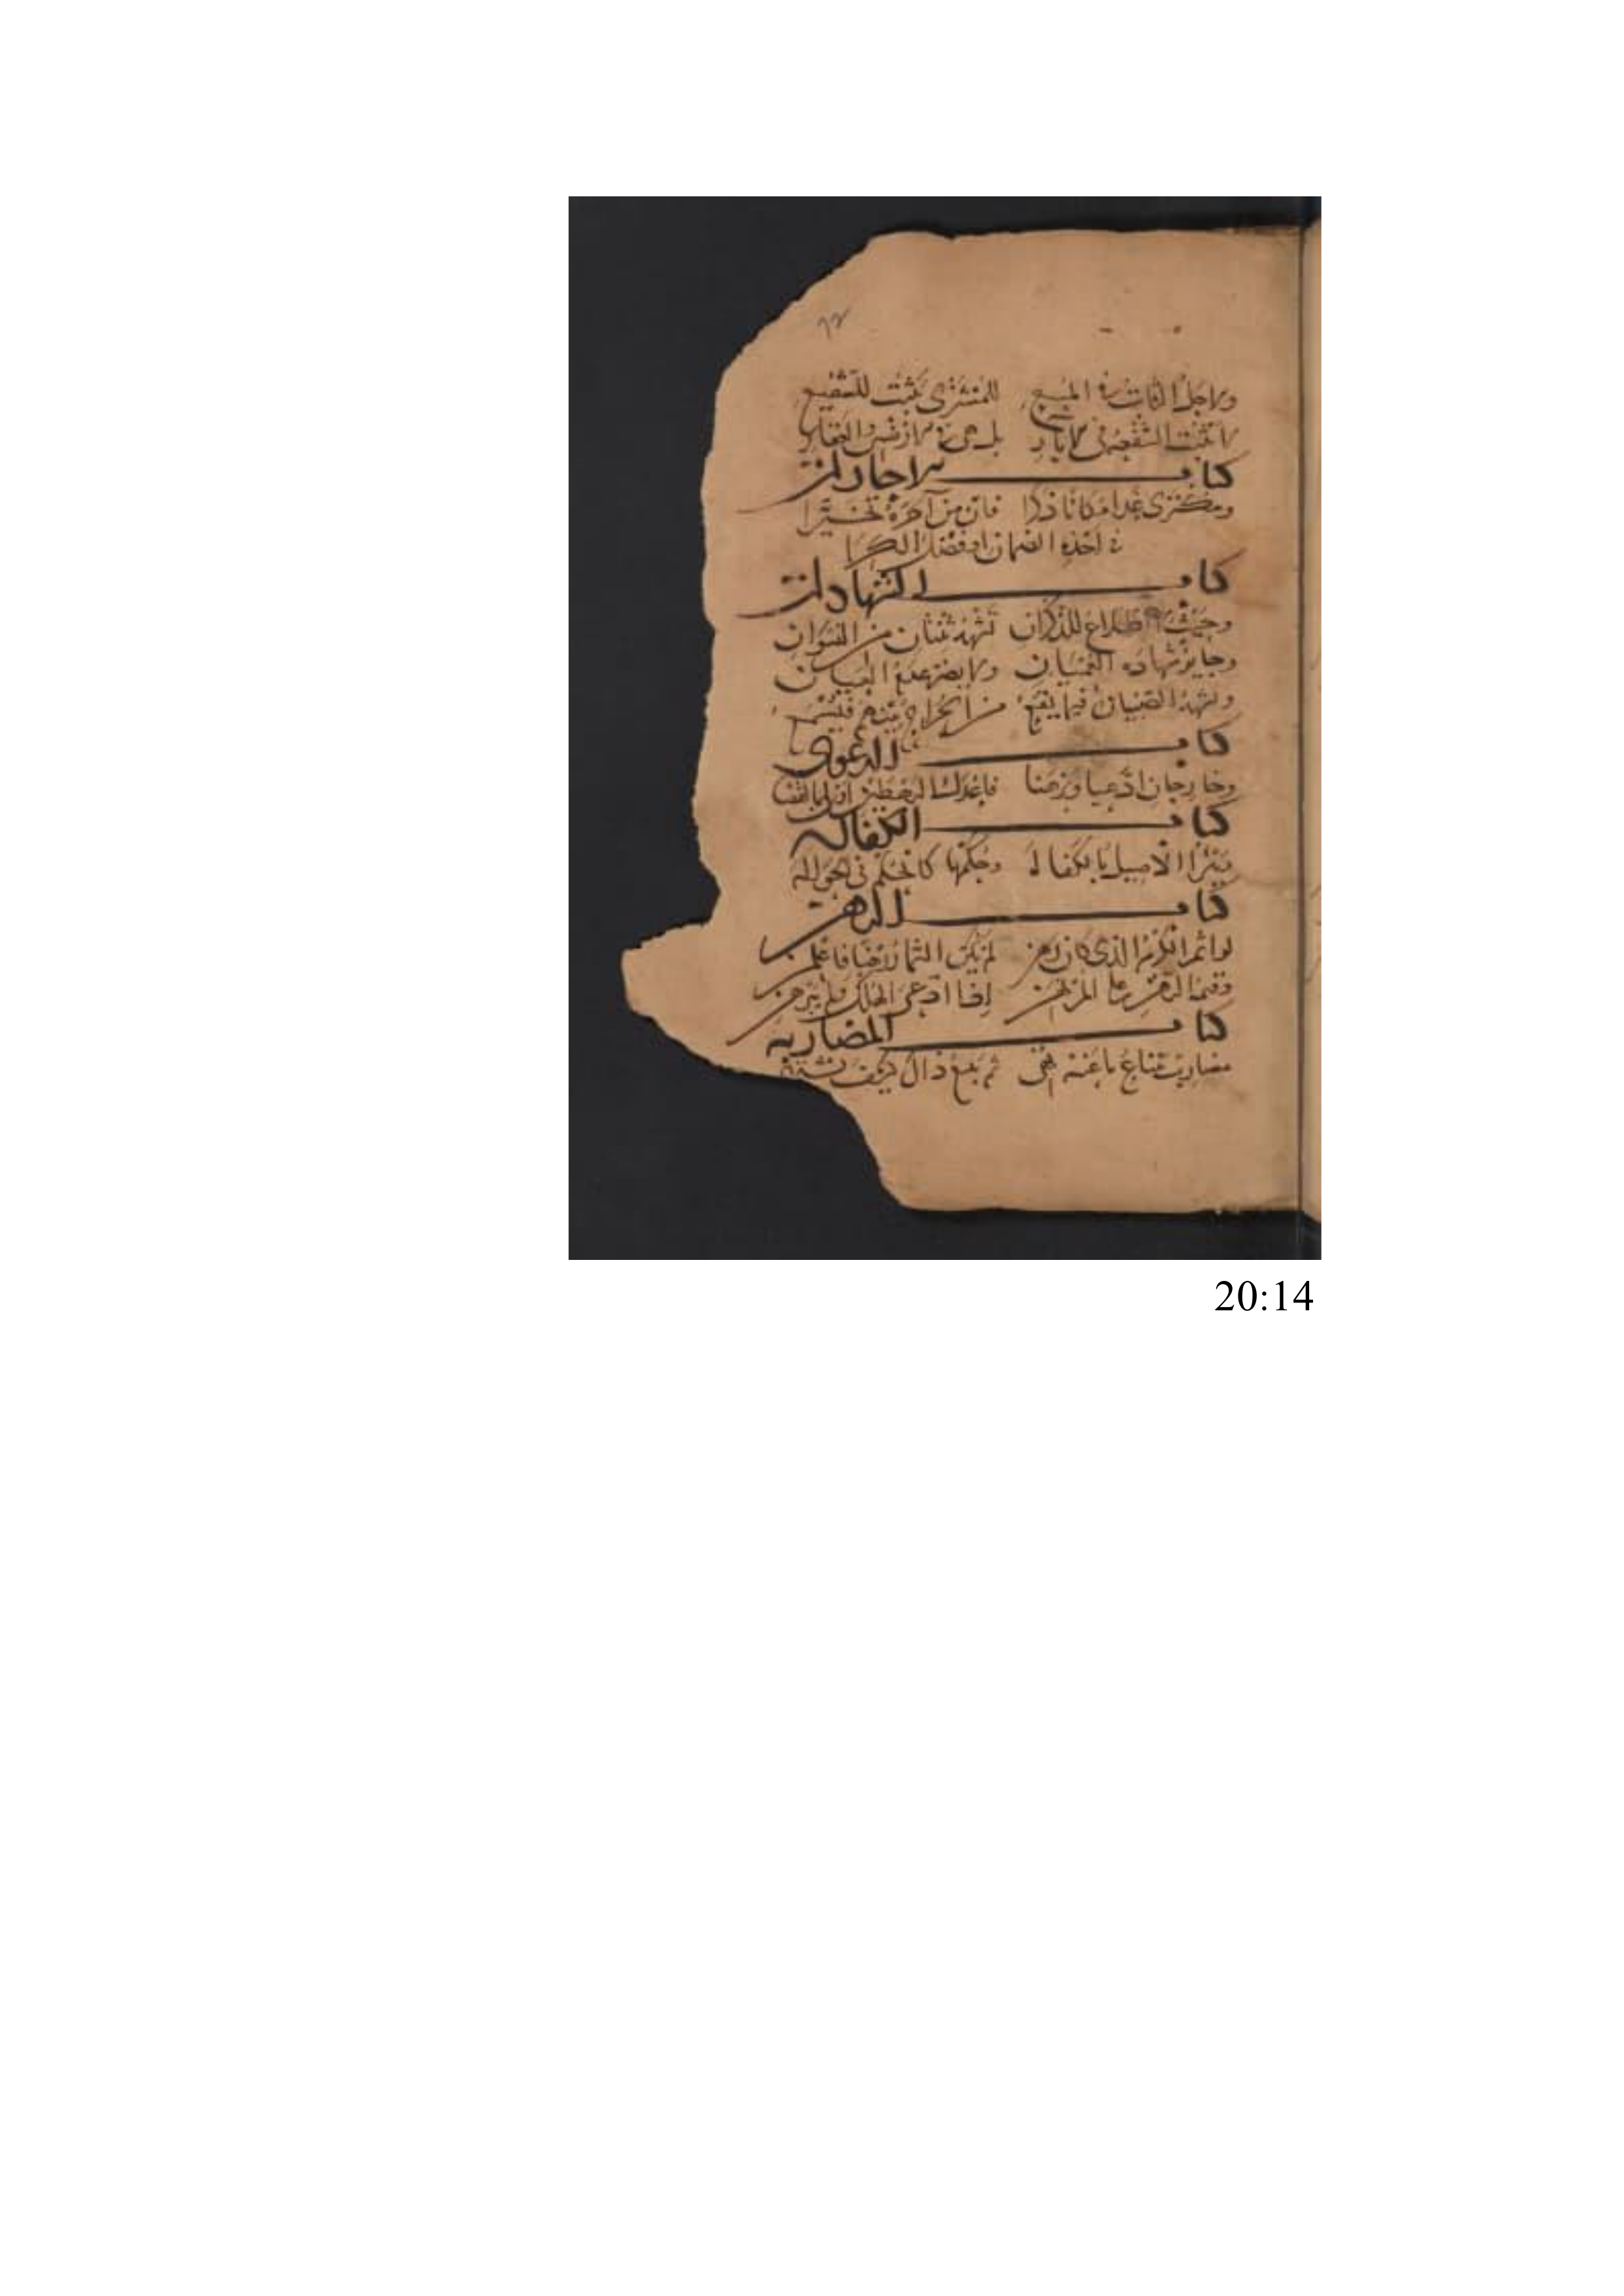 ٦٢
ولاجل الثابت في المبيع للمشتري يثبت للشفيع
لا تثبت الشفعة في بل هي في الارضين والعقار
كتاب الاجارات
ومكترى غلامه كانا ذكرا فان من آجره تخيرا
في اخذه الضمان او فضل الكرا
كتاب الشهادات
وحيث للذكران تشهد ثنتان من النسوان
وجايز شهادة العميان ولا يضر عدم العيان
وتشهد الصبيان فيما يقع من الجراح بينهم فيسمع
كتاب الدعوى
وخارجان ادعيا وبرهنا
كتاب الكفالة
يبرأ الاصيل بالكفاله وحكمها كالحكم في الحواله
كتاب الرهن
لو اثمر الكرم الذي كان رهن لم يكن الثمار رهنا فاعلمن
وقيمة الرهن على المرتهن اذا ادعى الهلك ولم يبرهن
كتاب المضاربه
مضارب يبتاع ما عنه نهي ثم يبيع ذاك كيف يشتهي
20:14